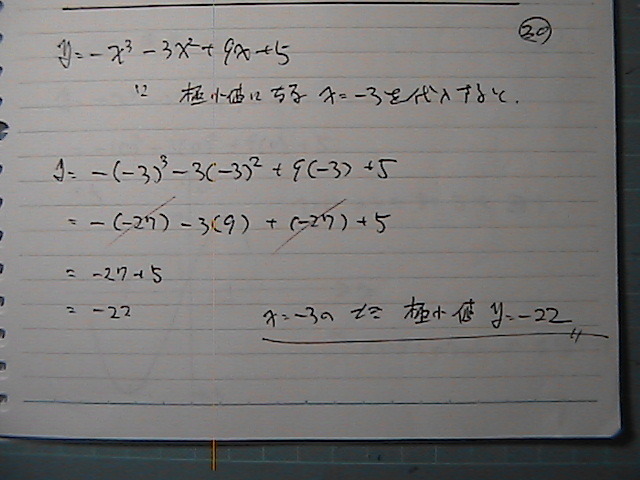 20
y = -x³ - 3x² + 9x + 5
に 極小値になる x = -3 を代入すると.
y = -(-3)³ - 3(-3)² + 9(-3) + 5
= -(-27) - 3(9) + (-27) + 5
= -27 + 5
= -22
x = -3 の とき 極小値 y = -22